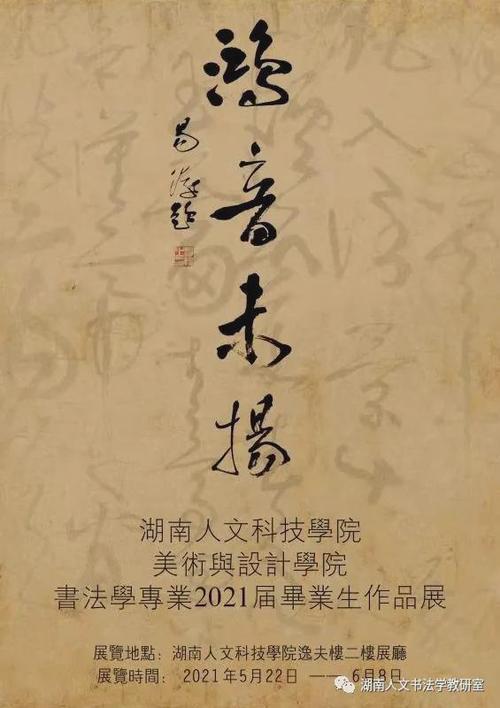 鴻音未揚
易游題
湖南人文科技學院
美術與設計學院
書法學專業2021届畢業生作品展
展覽地點：湖南人文科技學院逸夫樓二樓展廳
展覽時間：2021年5月22日 —— 6月8日
湖南人文书法学教研室